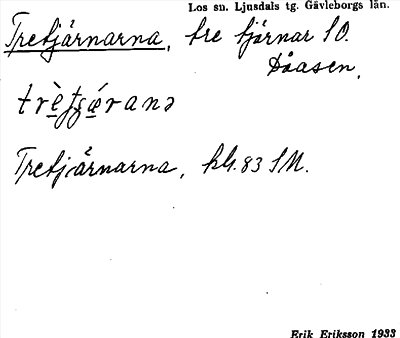 Los sn. Ljusdals tg. Gävleborgs län.
Tretjärnarna, tre tjärnar SO.
Dåasen.
Tretjärnarna, bl. 83 SM.
Erik Eriksson 1933